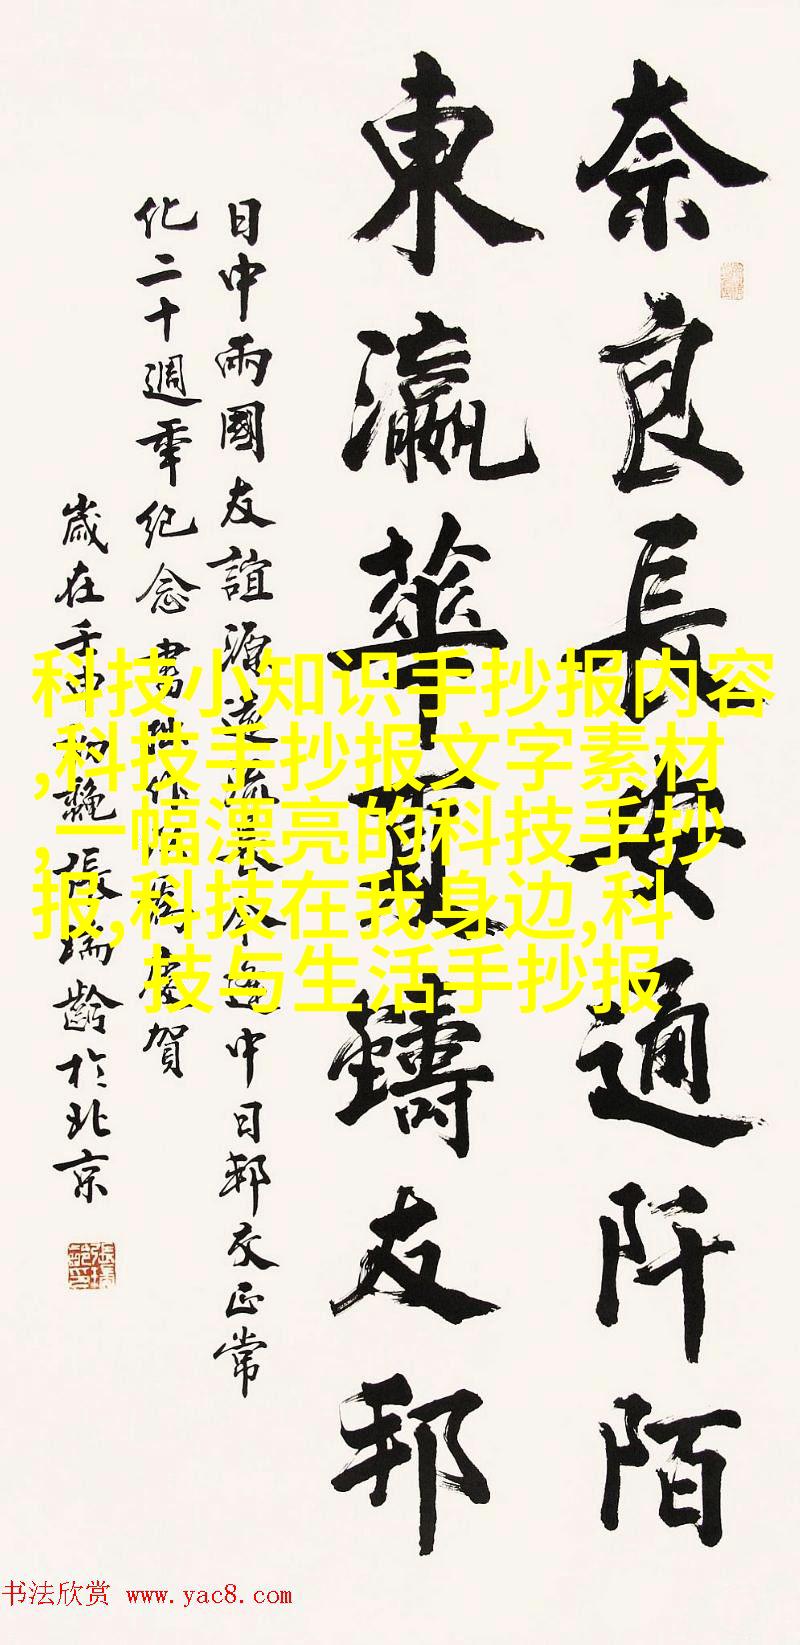 奈良長安通阡陌
東瀛華夏鑄友邦
日中兩國友誼源遠流長今逢中日邦交正常
化二十週年紀念書此作為慶賀
歲在壬申初龝張瑞齡於北京
科技小知识手抄报内容
,科技手抄报文字素材
,一幅漂亮的科技手抄
报,科技在我身边,科
技与生活手抄报
书法欣赏 www.yac8.com